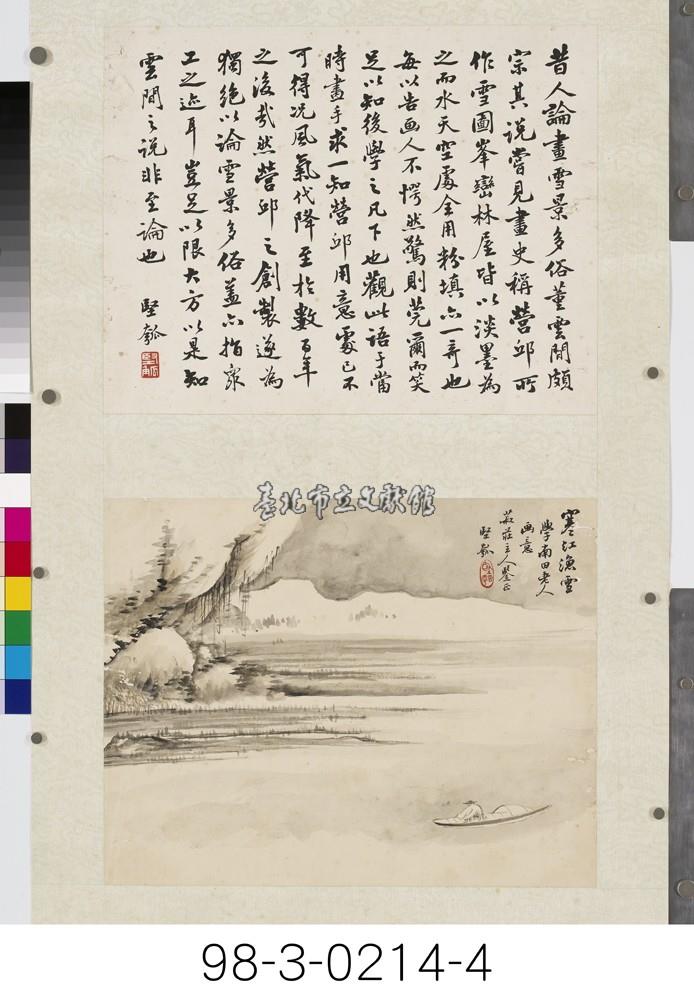 昔人論畫雪景多俗董雲間頗
宗其説嘗見畫史稱營邱所
作雪圖峯巒林屋皆以淡墨為
之而水天空處全用粉填亦一奇也
每以告画人不愕然驚則莞爾而笑
足以知後學之凡下也觀此語于當
時畫手求一知營邱用意處已不
可得况風氣代降至於數百年
之後哉然營邱之創製遂為
獨絶以論雪景多俗蓋亦指衆
工之迹耳豈足以限大方以是知
雲間之説非至論也
堅瓠
臺北市立文獻館
寒江漁雪
學南田老人
画意
菽莊主人鑒正
堅瓠
98-3-0214-4